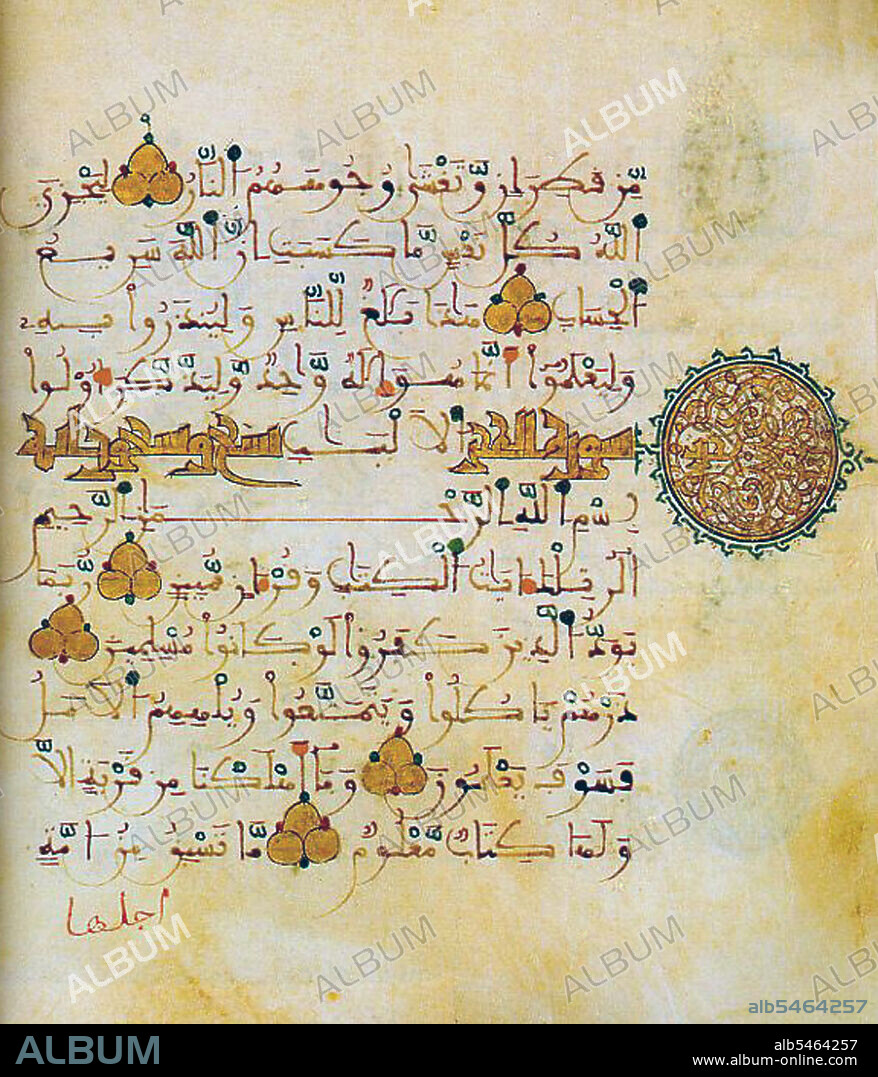 مِّن قَطِرَانٍ وَّتَغْشَىٰ وُجُوهَهُمُ النَّارُ لِيَجْزِيَ
اللَّهُ كُلَّ نَفْسٍ مَّا كَسَبَتِ اِنَّ اللَّهَ سَرِيعُ
الْحِسَابِ هَٰذَا بَلَٰغٌ لِّلنَّاسِ وَلِيُنذَرُوا بِهِ
وَلِيَعْلَمُوا أَنَّمَا هُوَ إِلَٰهٌ وَّاحِدٌ وَّلِيَذَّكَّرَ أُوْلُوا
سورة الحجر الالْبَٰبِ تسع وتسعون اية
بِسْمِ اللَّهِ الرَّحْمَٰنِ الرَّحِيمِ
الٓر تِلْكَ ءَايَٰتُ الْكِتَٰبِ وَقُرْءَانٍ مُّبِينٍ رُّبَمَا
يَوَدُّ الَّذِينَ كَفَرُوا لَوْ كَانُوا مُسْلِمِينَ
ذَرْهُمْ يَاكُلُوا وَيَتَمَتَّعُوا وَيُلْهِهِمُ الامَلُ
فَسَوْفَ يَعْلَمُونَ وَمَا أَهْلَكْنَا مِن قَرْيَةٍ الَّا
وَلَهَا كِتَابٌ مَّعْلُومٌ مَّا تَسْبِقُ مِنُ امَّةٍ
اجلها
alb5464257
ALBUM
alb5464257
www.album-online.com